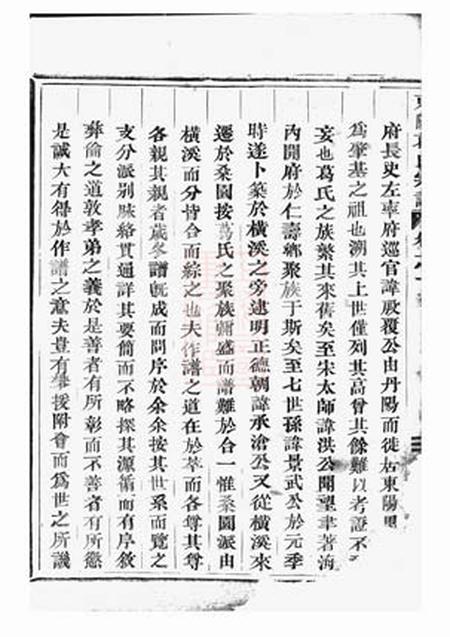 府長史左率府巡官諱㲄覆公由丹陽而徙居東陽
為肇基之祖也溯其上世僅列其高曾其餘難以考證不
妄也葛氏之族繁其來舊矣至宋太師諱洪公開望聿著海
內開府於仁壽鄉聚族于斯矣至七世孫諱景武公於元季
時遂卜築於橫溪之旁逮明正德朝諱承滄公又從橫溪來
遷於桑園按葛氏之聚族彌盛而譜難於合一惟桑園派由
橫溪而分恃合而綜之也夫作譜之道在於萃而各尊其尊
各親其親者歲冬譜旣成而問序於余余按其世系而覽之
支分派別脉絡貫通詳其要簡而不略探其源循而有序敘
彝倫之道敦孝弟之義於是善者有所彰而不善者有所懲
是誠大有得於作譜之意夫豈有攀援附會而爲世之所譏